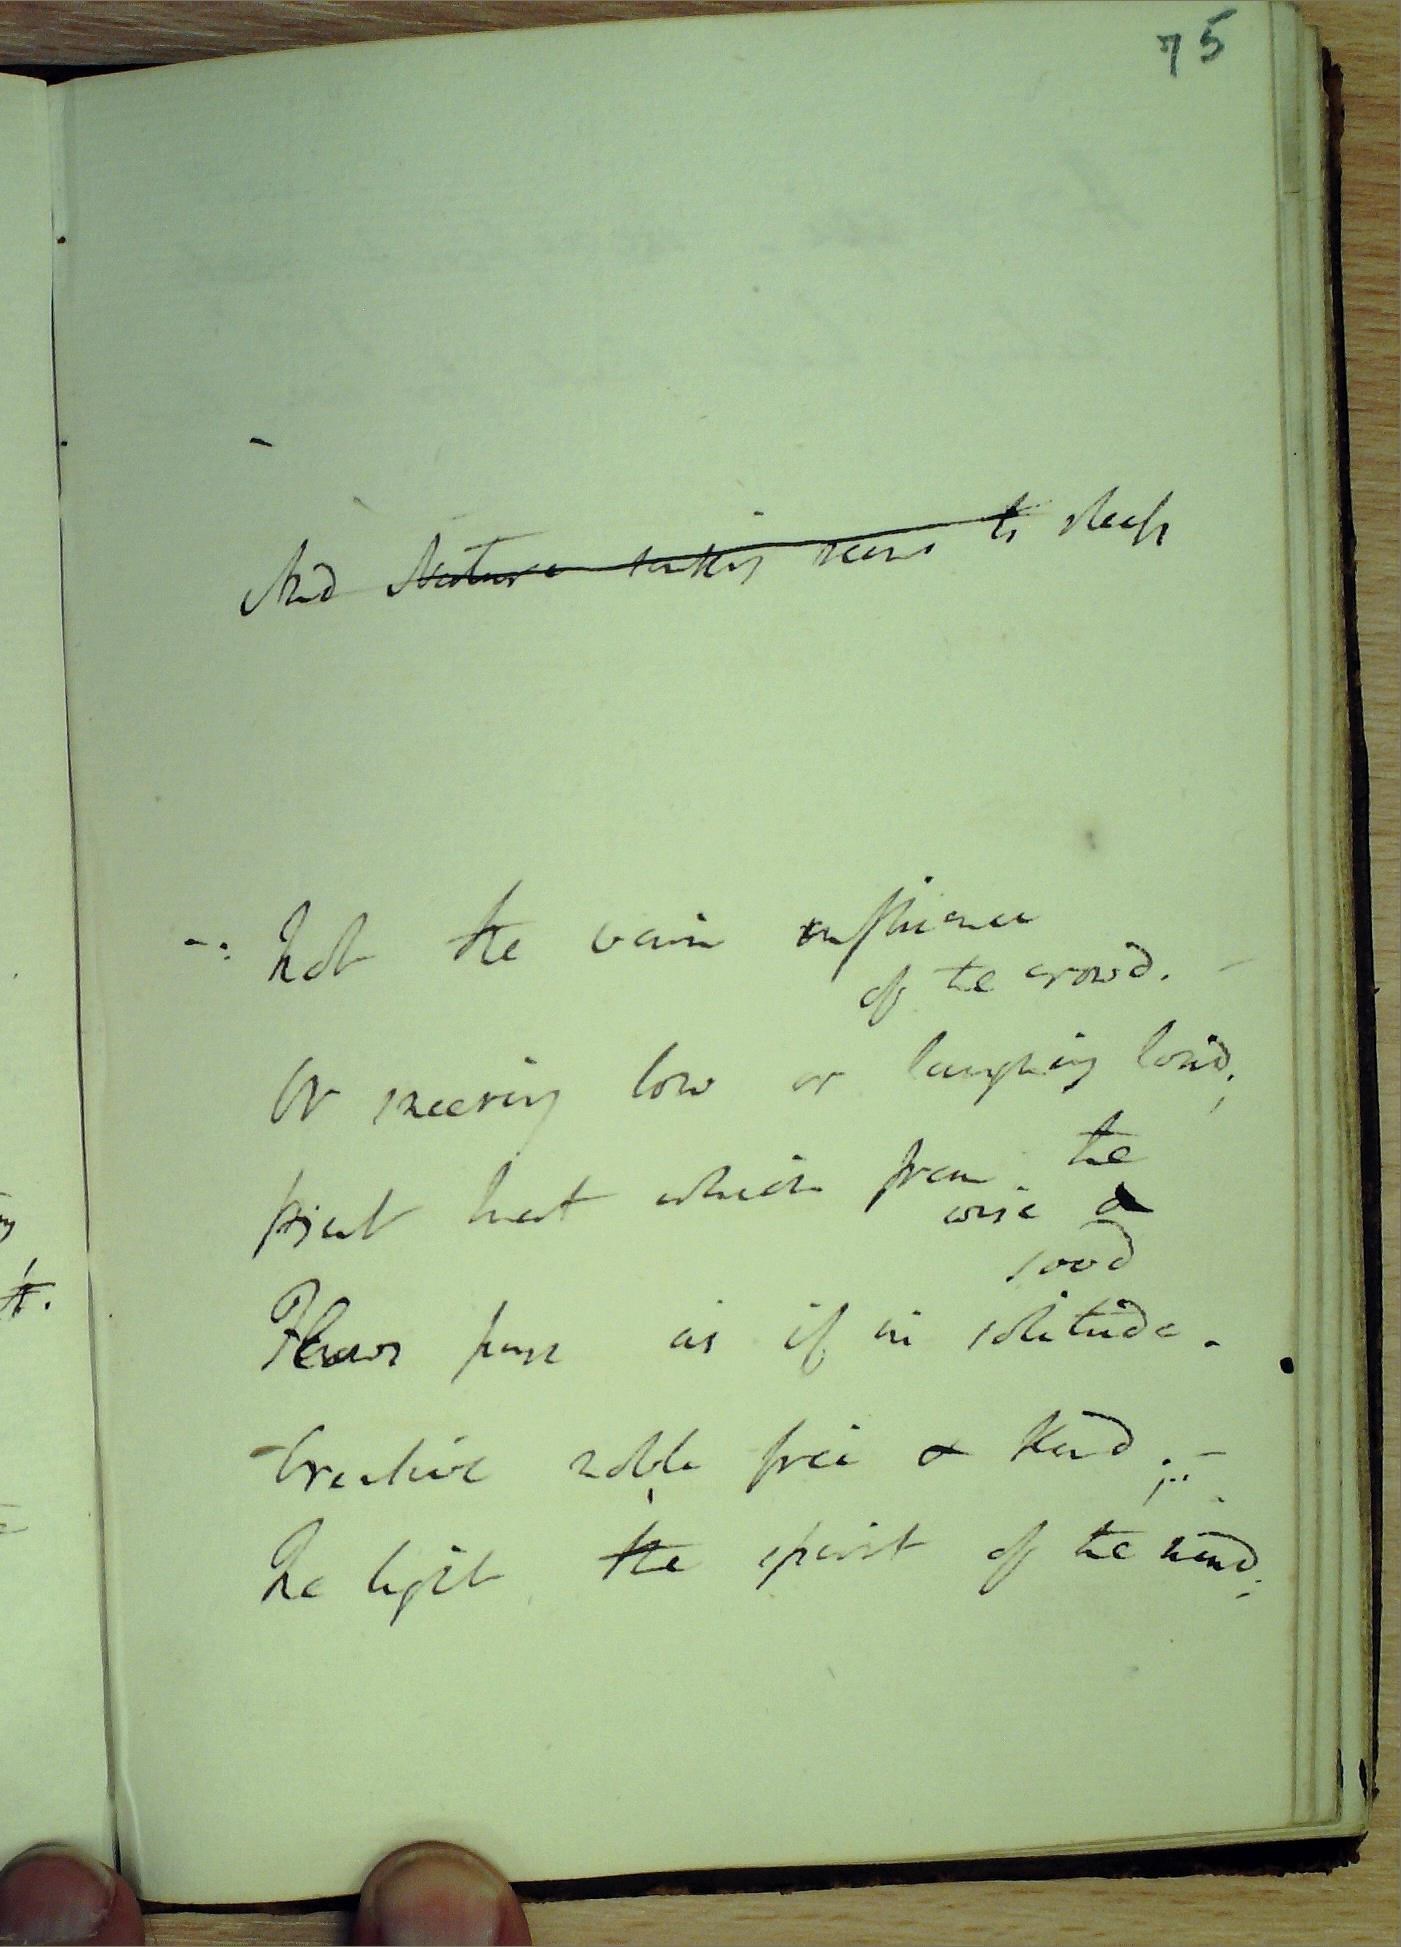 75
And Nature seems to sleep
-: Not the vain influence
of the crowd. -
Or sneering low or laughing loud;
But that which from the
wise &
good
Flows pure as if in solitude.
Creative noble free & kind.;-
The light, the spirit of the mind;